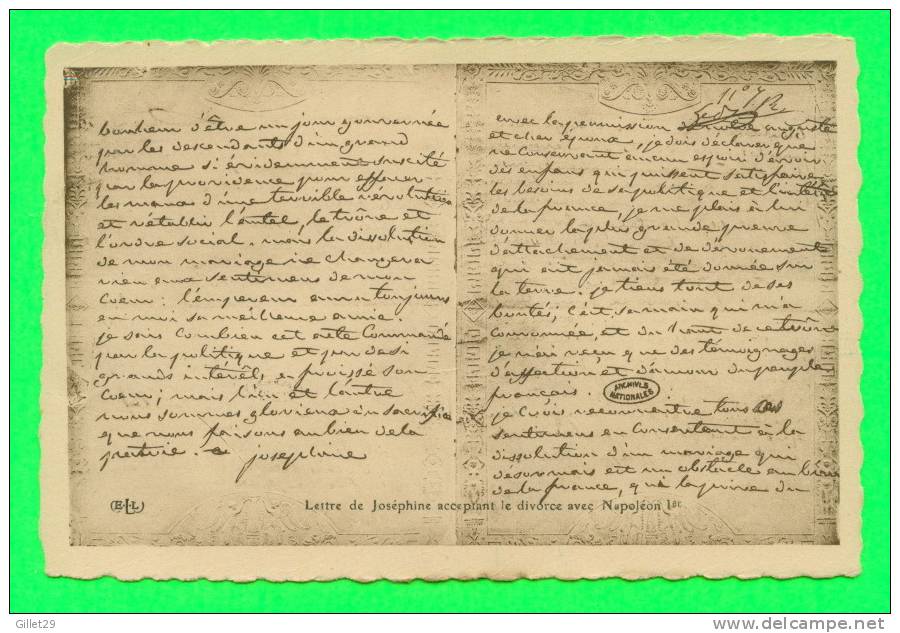 avec la permission de notre auguste
et cher époux, je dois déclarer que
ne conservant aucun espoir d'avoir
des enfans qui puissent satisfaire
les besoins de sa politique et l'intérêt
de la france, je me plais à lui
donner la plus grande preuve
d'attachement et de dévouement
qui ait jamais été donnée sur
la terre. je tiens tout de ses
bontés, c'est sa main qui m'a
couronnée, et du haut de ce trône
je n'ai reçu que des témoignages
d'affection et d'amour du peuple
français.
ARCHIVES
NATIONALES
je crois reconnaitre tous ces
sentimens en consentant à la
dissolution d'un mariage qui
désormais est un obstacle au bien
de la france, qui la prive du
bonheur d'être un jour gouvernée
par les descendants d'un grand
homme si évidemment suscité
par la providence pour effacer
les maux d'une terrible révolution
et rétablir l'autel, le trone et
l'ordre social. mais la dissolution
de mon mariage ne changera
rien aux sentimens de mon
coeur: l'empereur aura toujours
en moi sa meilleure amie.
je sais combien cet acte commandé
par la politique et par de si
grands intérêts, a froissé son
coeur; mais l'un et l'autre
nous sommes glorieux du sacrifice
que nous faisons au bien de la
patrie.
joséphine
ELL
Lettre de Joséphine acceptant le divorce avec Napoléon Ier
Gillet29
http://www.delcampe.net